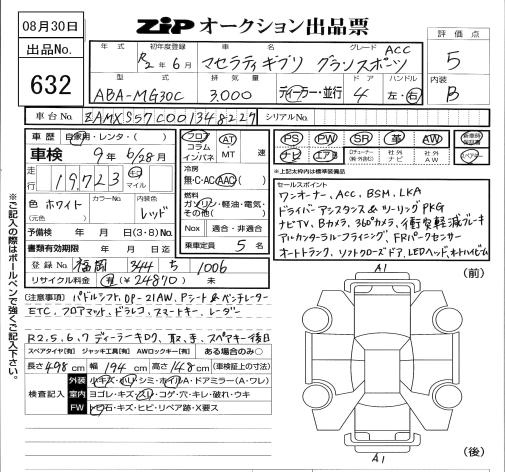 08月30日
ZiP オークション出品票
出品No.
632
年式
R2年
初年度登録
6月
車名
マセラティギブリ グランスポーツ
グレード
ACC
評価点
5
型式
ABA-MG30C
排気量
3,000
ディーラー・並行
ドア
4
ハンドル
左・右
内装
B
車台No.
ZAMXS57C001348227
シリアルNo.
車歴 自家用・レンタ・( )
車検 9年 6/28月
走行 19,723 キロ マイル
色 ホワイト
(元色)
カラーNo.
内装色
レッド
予備検 年 月 日 (3・8) No.
書類有効期限 年 月 日迄
登録No. 福岡 344 ち 1006
リサイクル料金 有 (¥24870) 未
フロア
コラム
インパネ
AT
・
MT 速
冷房
無・C・AC・AAC
燃料
ガソリン・軽油・電気・
その他( )
Nox 適合・非適合
乗車定員 5名
PS PW SR 革 AW
ナビ エアB
社外ナビ
社外AW
新車時保証書
スペアキー
※上記太枠内は標準装備品
セールスポイント
ワンオーナー、ACC、BSM、LKA
ドライバーアシスタンス&ツーリングPKG
ナビTV、Bカメラ、360°カメラ、衝突軽減ブレーキ
アルカンターラルーフライニング、FRパークセンサー
オートトランク、ソフトクローズドア、LEDヘッド、オートハイビーム
(注意事項) パドルシフト、OP-21AW、Pシート&ベンチレーター
ETC、フロアマット、ドラレコ、スマートキー、レーダー
R2,5,6,7 ディーラーキロク、取、手、スペアキー後日
スペアタイヤ[有] ジャッキ工具[有] AWロックキー[有] ある場合のみ○
長さ 498 cm 幅 194 cm 高さ 148 cm (車検証上の寸法)
検査記入
外装 小キズ・小凹・シミ・ホイルA・ドアミラー(A・ワレ)
室内 ヨゴレ・キズ・スレ・コゲ・穴・キレ・破れ・ウキ
FW トビ石・キズ・ヒビ・リペア跡・X要ス
※ご記入の際はボールペンで強くご記入下さい。
A1
(前)
A1
(後)